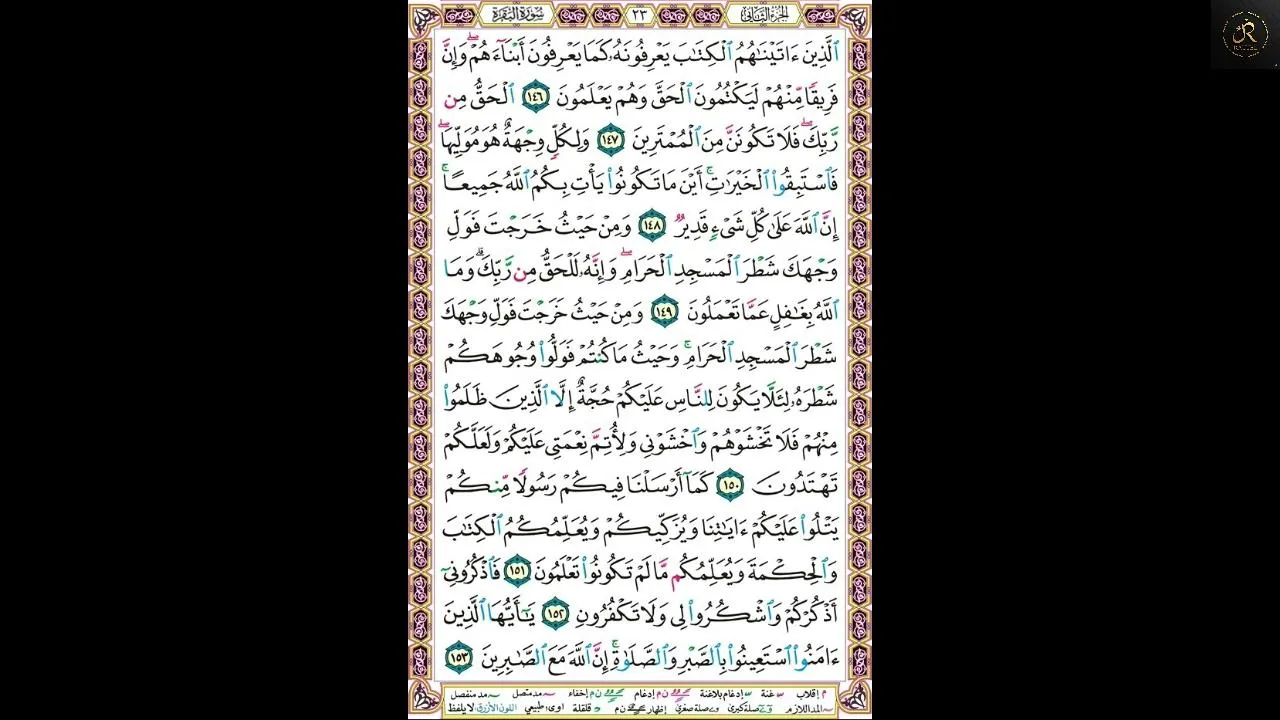 الجزء الثاني ٢٣ سورة البقرة
ٱلَّذِينَ ءَاتَيۡنَٰهُمُ ٱلۡكِتَٰبَ يَعۡرِفُونَهُۥ كَمَا يَعۡرِفُونَ أَبۡنَآءَهُمۡۖ وَإِنَّ
فَرِيقٗا مِّنۡهُمۡ لَيَكۡتُمُونَ ٱلۡحَقَّ وَهُمۡ يَعۡلَمُونَ ١٤٦ ٱلۡحَقُّ مِن
رَّبِّكَۖ فَلَا تَكُونَنَّ مِنَ ٱلۡمُمۡتَرِينَ ١٤٧ وَلِكُلّٖ وِجۡهَةٌ هُوَ مُوَلِّيهَاۖ
فَٱسۡتَبِقُواْ ٱلۡخَيۡرَٰتِۚ أَيۡنَ مَا تَكُونُواْ يَأۡتِ بِكُمُ ٱللَّهُ جَمِيعًاۚ
إِنَّ ٱللَّهَ عَلَىٰ كُلِّ شَيۡءٖ قَدِيرٞ ١٤٨ وَمِنۡ حَيۡثُ خَرَجۡتَ فَوَلِّ
وَجۡهَكَ شَطۡرَ ٱلۡمَسۡجِدِ ٱلۡحَرَامِۖ وَإِنَّهُۥ لَلۡحَقُّ مِن رَّبِّكَۗ وَمَا
ٱللَّهُ بِغَٰفِلٍ عَمَّا تَعۡمَلُونَ ١٤٩ وَمِنۡ حَيۡثُ خَرَجۡتَ فَوَلِّ وَجۡهَكَ
شَطۡرَ ٱلۡمَسۡجِدِ ٱلۡحَرَامِۚ وَحَيۡثُ مَا كُنتُمۡ فَوَلُّواْ وُجُوهَكُمۡ
شَطۡرَهُۥ لِئَلَّا يَكُونَ لِلنَّاسِ عَلَيۡكُمۡ حُجَّةٌ إِلَّا ٱلَّذِينَ ظَلَمُواْ
مِنۡهُمۡ فَلَا تَخۡشَوۡهُمۡ وَٱخۡشَوۡنِي وَلِأُتِمَّ نِعۡمَتِي عَلَيۡكُمۡ وَلَعَلَّكُمۡ
تَهۡتَدُونَ ١٥٠ كَمَآ أَرۡسَلۡنَا فِيكُمۡ رَسُولٗا مِّنكُمۡ
يَتۡلُواْ عَلَيۡكُمۡ ءَايَٰتِنَا وَيُزَكِّيكُمۡ وَيُعَلِّمُكُمُ ٱلۡكِتَٰبَ
وَٱلۡحِكۡمَةَ وَيُعَلِّمُكُم مَّا لَمۡ تَكُونُواْ تَعۡلَمُونَ ١٥١ فَٱذۡكُرُونِيٓ
أَذۡكُرۡكُمۡ وَٱشۡكُرُواْ لِي وَلَا تَكۡفُرُونِ ١٥٢ يَٰٓأَيُّهَا ٱلَّذِينَ
ءَامَنُواْ ٱسۡتَعِينُواْ بِٱلصَّبۡرِ وَٱلصَّلَوٰةِۚ إِنَّ ٱللَّهَ مَعَ ٱلصَّٰبِرِينَ ١٥٣
م إقلاب غنة إدغام بلاغنة ن م إدغام ن م إخفاء مد متصل مد منفصل
المد اللازم صلة كبرى صلة صغرى إظهار ن م قلقلة اوى طبيعي اللون الأزرق لا يلفظ